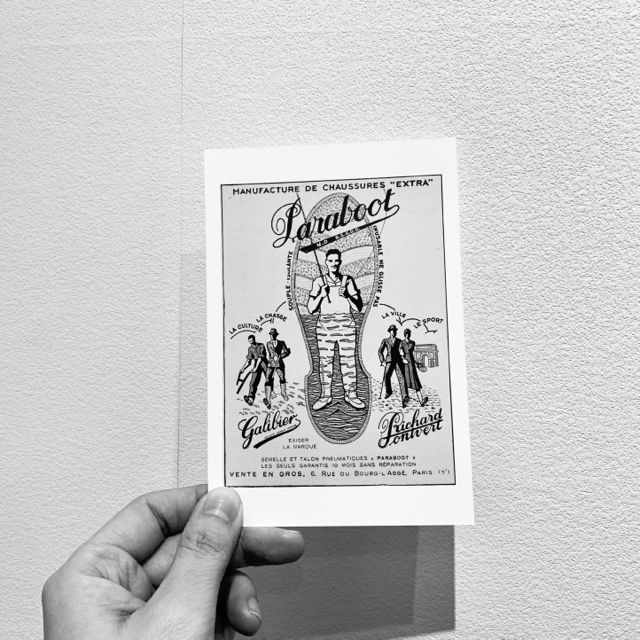 MANUFACTURE DE CHAUSSURES "EXTRA"
Paraboot
SOUPLE
INUSABLE NE GLISSE PAS
LA CULTURE
LA CHASSE
LA VILLE
LE SPORT
Galibier
EXIGER
LA MARQUE
Richard
Pontvert
SEMELLE ET TALON PNEUMATIQUES « PARABOOT »
LES SEULS GARANTIS 10 MOIS SANS RÉPARATION
VENTE EN GROS, 6, RUE DU BOURG-L'ABBÉ, PARIS